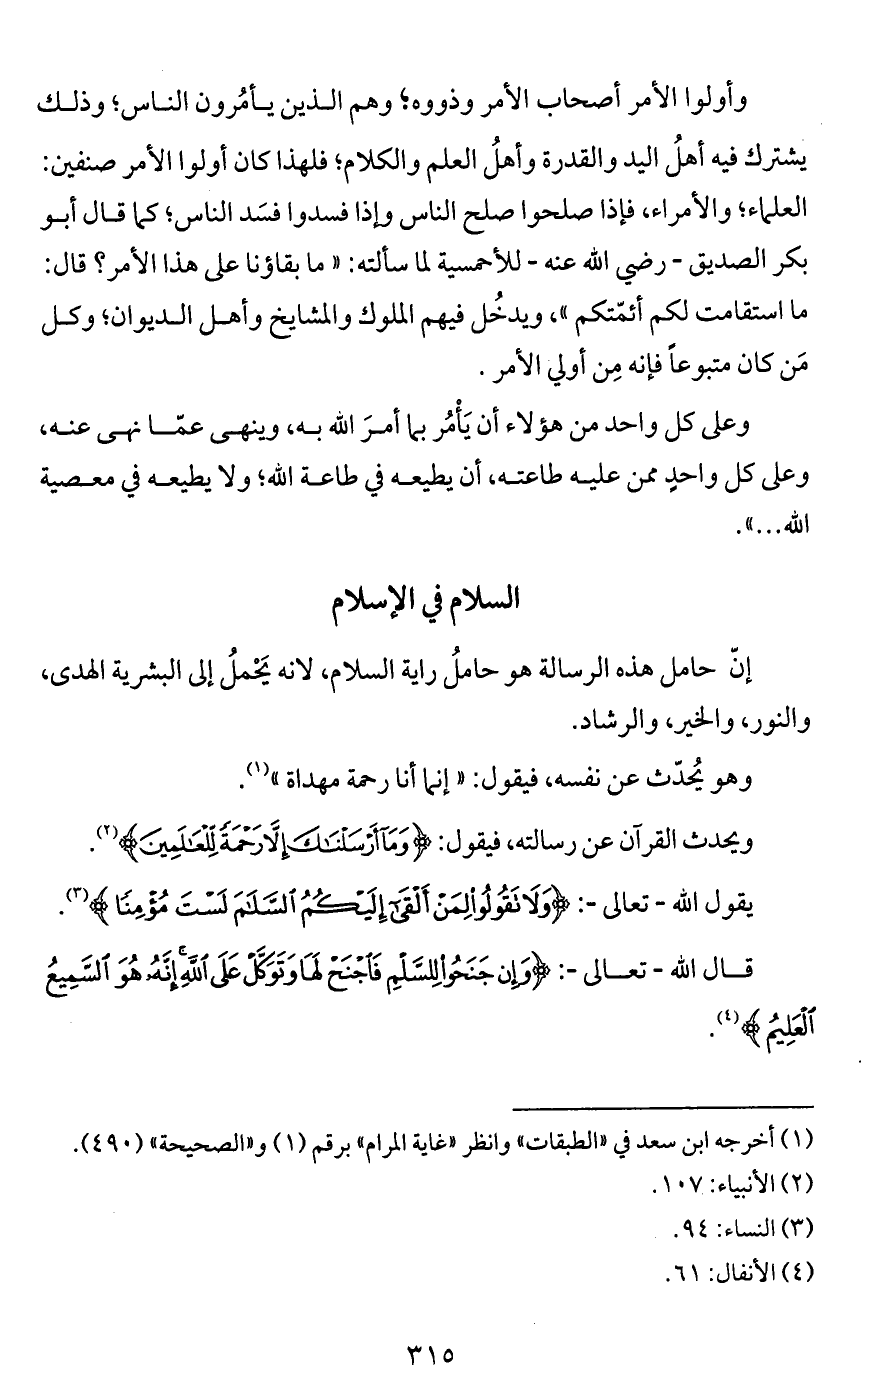 وأولوا الأمر أصحاب الأمر وذووه؛ وهم الذين يأمُرون الناس؛ وذلك
يشترك فيه أهلُ اليد والقدرة وأهلُ العلم والكلام؛ فلهذا كان أولوا الأمر صنفين:
العلماء؛ والأمراء، فإذا صلحوا صلح الناس وإذا فسدوا فسَد الناس؛ كما قال أبو
بكر الصديق - رضي الله عنه - للأحمسية لما سألته: « ما بقاؤنا على هذا الأمر؟ قال:
ما استقامت لكم أئمّتكم »، ويدخُل فيهم الملوك والمشايخ وأهل الديوان؛ وكل
مَن كان متبوعاً فإنه مِن أولي الأمر .
وعلى كل واحد من هؤلاء أن يَأْمُر بما أمرَ الله به، وينهى عمّا نهى عنه،
وعلى كل واحدٍ ممن عليه طاعته، أن يطيعه في طاعة الله؛ ولا يطيعه في معصية
الله...».
السلام في الإسلام
إنّ حامل هذه الرسالة هو حاملُ راية السلام، لانه يَحْملُ إلى البشرية الهدى،
والنور، والخير، والرشاد.
وهو يُحدّث عن نفسه، فيقول: « إنما أنا رحمة مهداة »(١).
ويحدث القرآن عن رسالته، فيقول: ﴿وَمَآ أَرْسَلْنَٰكَ إِلَّا رَحْمَةً لِّلْعَٰلَمِينَ﴾(٢).
يقول الله - تعالى -: ﴿وَلَا تَقُولُوا۟ لِمَنْ أَلْقَىٰٓ إِلَيْكُمُ ٱلسَّلَٰمَ لَسْتَ مُؤْمِنًا ﴾(٣).
قال الله - تعالى -: ﴿وَإِن جَنَحُوا۟ لِلسَّلْمِ فَٱجْنَحْ لَهَا وَتَوَكَّلْ عَلَى ٱللَّهِ ۚ إِنَّهُۥ هُوَ ٱلسَّمِيعُ
ٱلْعَلِيمُ ﴾(٤).
(١) أخرجه ابن سعد في «الطبقات» وانظر «غاية المرام» برقم (١) و«الصحيحة» (٤٩٠).
(٢) الأنبياء: ١٠٧.
(٣) النساء: ٩٤.
(٤) الأنفال: ٦١.
٣١٥